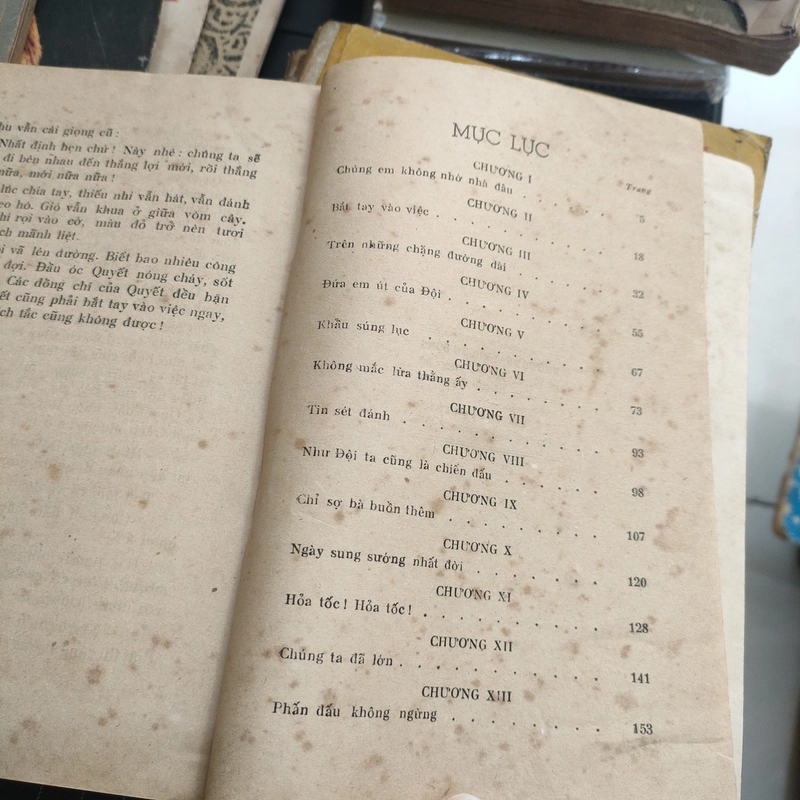 vẫn cái giọng cũ :
Nhất định hẹn chứ ! Này nhé : chúng ta sẽ
đi bên nhau đến thắng lợi mới, rồi thắng
nữa, mới nữa nữa !
lúc chia tay, thiếu nhi vẫn hát, vẫn đánh
hò. Gió vẫn khua ở giữa vòm cây.
rọi vào cờ, màu đỏ trở nên tươi
mãnh liệt.
vã lên đường. Biết bao nhiêu công
đợi. Đầu óc Quyết nóng cháy, sốt
Các đồng chí của Quyết đều bận
cũng phải bắt tay vào việc ngay,
tắc cũng không được !
MỤC LỤC
Trang
CHƯƠNG I
Chúng em không nhờ nhà đâu . . . . . . . 5
CHƯƠNG II
Bắt tay vào việc . . . . . . . . . . 18
CHƯƠNG III
Trên những chặng đường dài . . . . . . . 32
CHƯƠNG IV
Đứa em út của Đội . . . . . . . . . 55
CHƯƠNG V
Khẩu súng lục . . . . . . . . . . 67
CHƯƠNG VI
Không mắc lừa thằng ấy . . . . . . . . 73
CHƯƠNG VII
Tin sét đánh . . . . . . . . . . 93
CHƯƠNG VIII
Như Đội ta cũng là chiến đấu . . . . . . 98
CHƯƠNG IX
Chỉ sợ bà buồn thêm . . . . . . . . . 107
CHƯƠNG X
Ngày sung sướng nhất đời . . . . . . . . 120
CHƯƠNG XI
Hỏa tốc ! Hỏa tốc ! . . . . . . . . . 128
CHƯƠNG XII
Chúng ta đã lớn . . . . . . . . . . 141
CHƯƠNG XIII
Phấn đấu không ngừng . . . . . . . . 153